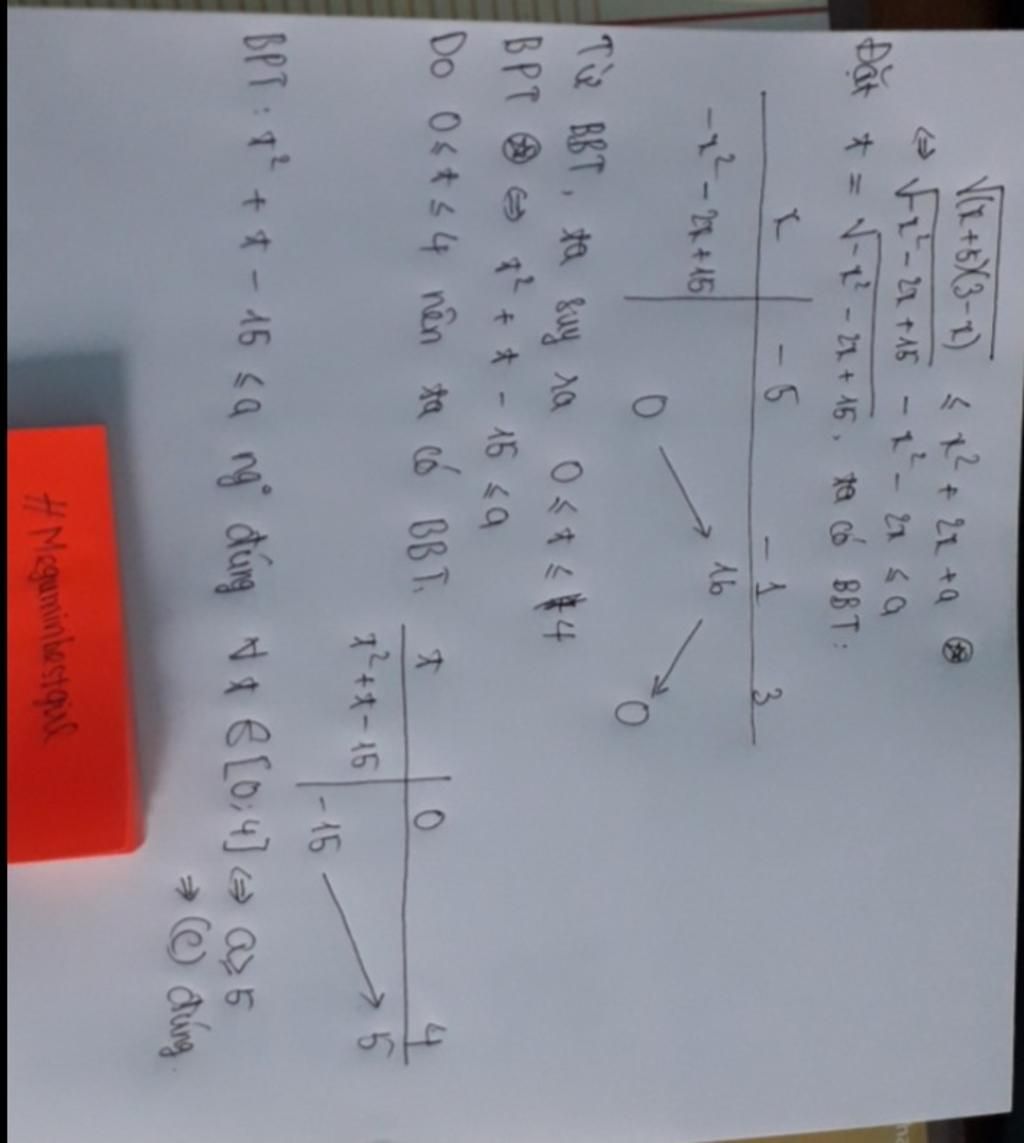 √(x+5)(3-x) ≤ x² + 2x + a ⊛
⇔ √-x² - 2x + 15 - x² - 2x ≤ a
Đặt t = √-x² - 2x + 15, ta có BBT:
x -5 -1 3
-x² - 2x + 15 0 ↗ 16 ↘ 0
Từ BBT, ta suy ra 0 ≤ t ≤ 4
BPT ⊛ ⇔ t² + t - 15 ≤ a
Do 0 ≤ t ≤ 4 nên ta có BBT:
t 0 4
t² + t - 15 -15 ↗ 5
BPT: t² + t - 15 ≤ a ng° đúng ∀ t ∈ [0;4] ⇔ a ≥ 5
⇒ (C) đúng.
#Meguminbestgirl